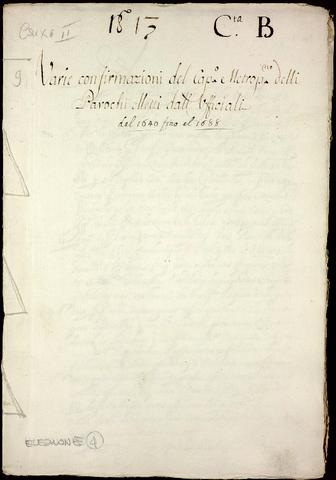 18 17 C.ta B
9
Varie confirmazioni del Cap.o Metrop.no delli
Parochi eletti dall' Ufficiali
del 1640 fino al 1688
ELEZIONE 4